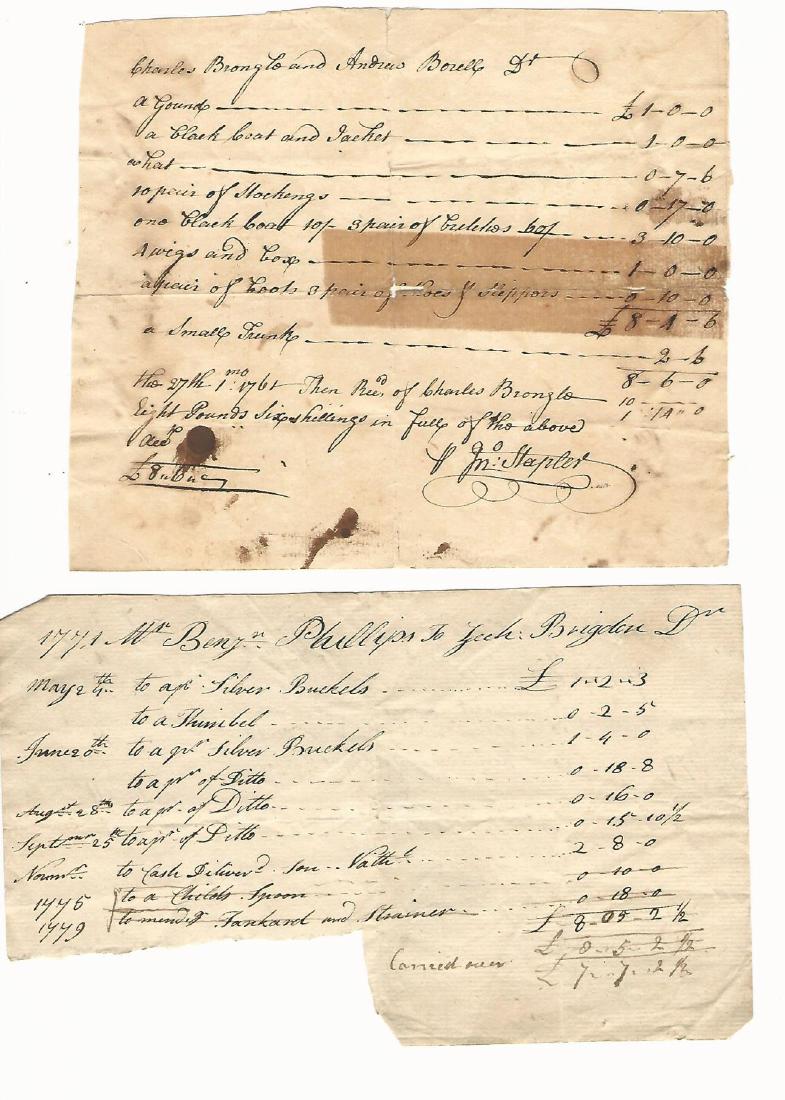 Charles Brongle and Andrew Borell Dr
a Gound £ 1-0-0
a black Coat and Jacket 1-0-0
a hat 0-7-6
10 pair of Stockengs 0-17-0
one black Coat 10/- 3 pair of britches 60/ 3-10-0
4 wigs and box 1-0-0
a pair of boots 3 pair of shoes & sleppors 0-10-0
£ 8-4-6
a Small Trunk 2-6
8-6-0
the 27th 1mo: 1761 Then Recd of Charles Brongle 10
Eight Pounds Six shillings in full of the above 1 14 0
Acct
£8"6"
Jno: Stapler
1771 Mr Benjn Phillips To Zech: Brigden Dr
May 2 to a pr Silver Buckels £ 1-2-3
to a Thimbel 0-2-5
June 20th to a pr Silver Buckels 1-4-0
to a pr of Ditto 0-18-8
Augst 28th to a pr of Ditto 0-16-0
Septmr 25th to a pr of Ditto 0-15-10½
Novmr to Cash Diliverd Son Nathl 2-8-0
1775 to a Childs Spoon 0-10-0
1779 to mendg Tankard and Strainer 0-18-0
£ 8-05-2½
£ 8-5-2½
Carried over £ 7-7-2½